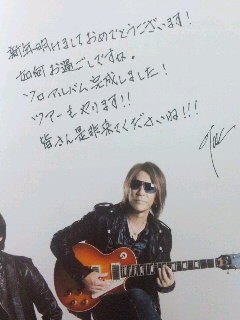 新年明けましておめでとうございます!
如何お過ごしですか。
ソロアルバム完成しました!
ツアーもやります!!
皆さん是非来てくださいね!!!